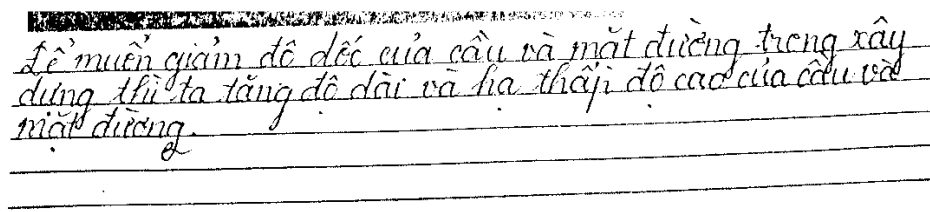 Để muốn giảm độ dốc của cầu và mặt đường trong xây
dựng thì ta tăng độ dài và hạ thấp độ cao của cầu và
mặt đường.